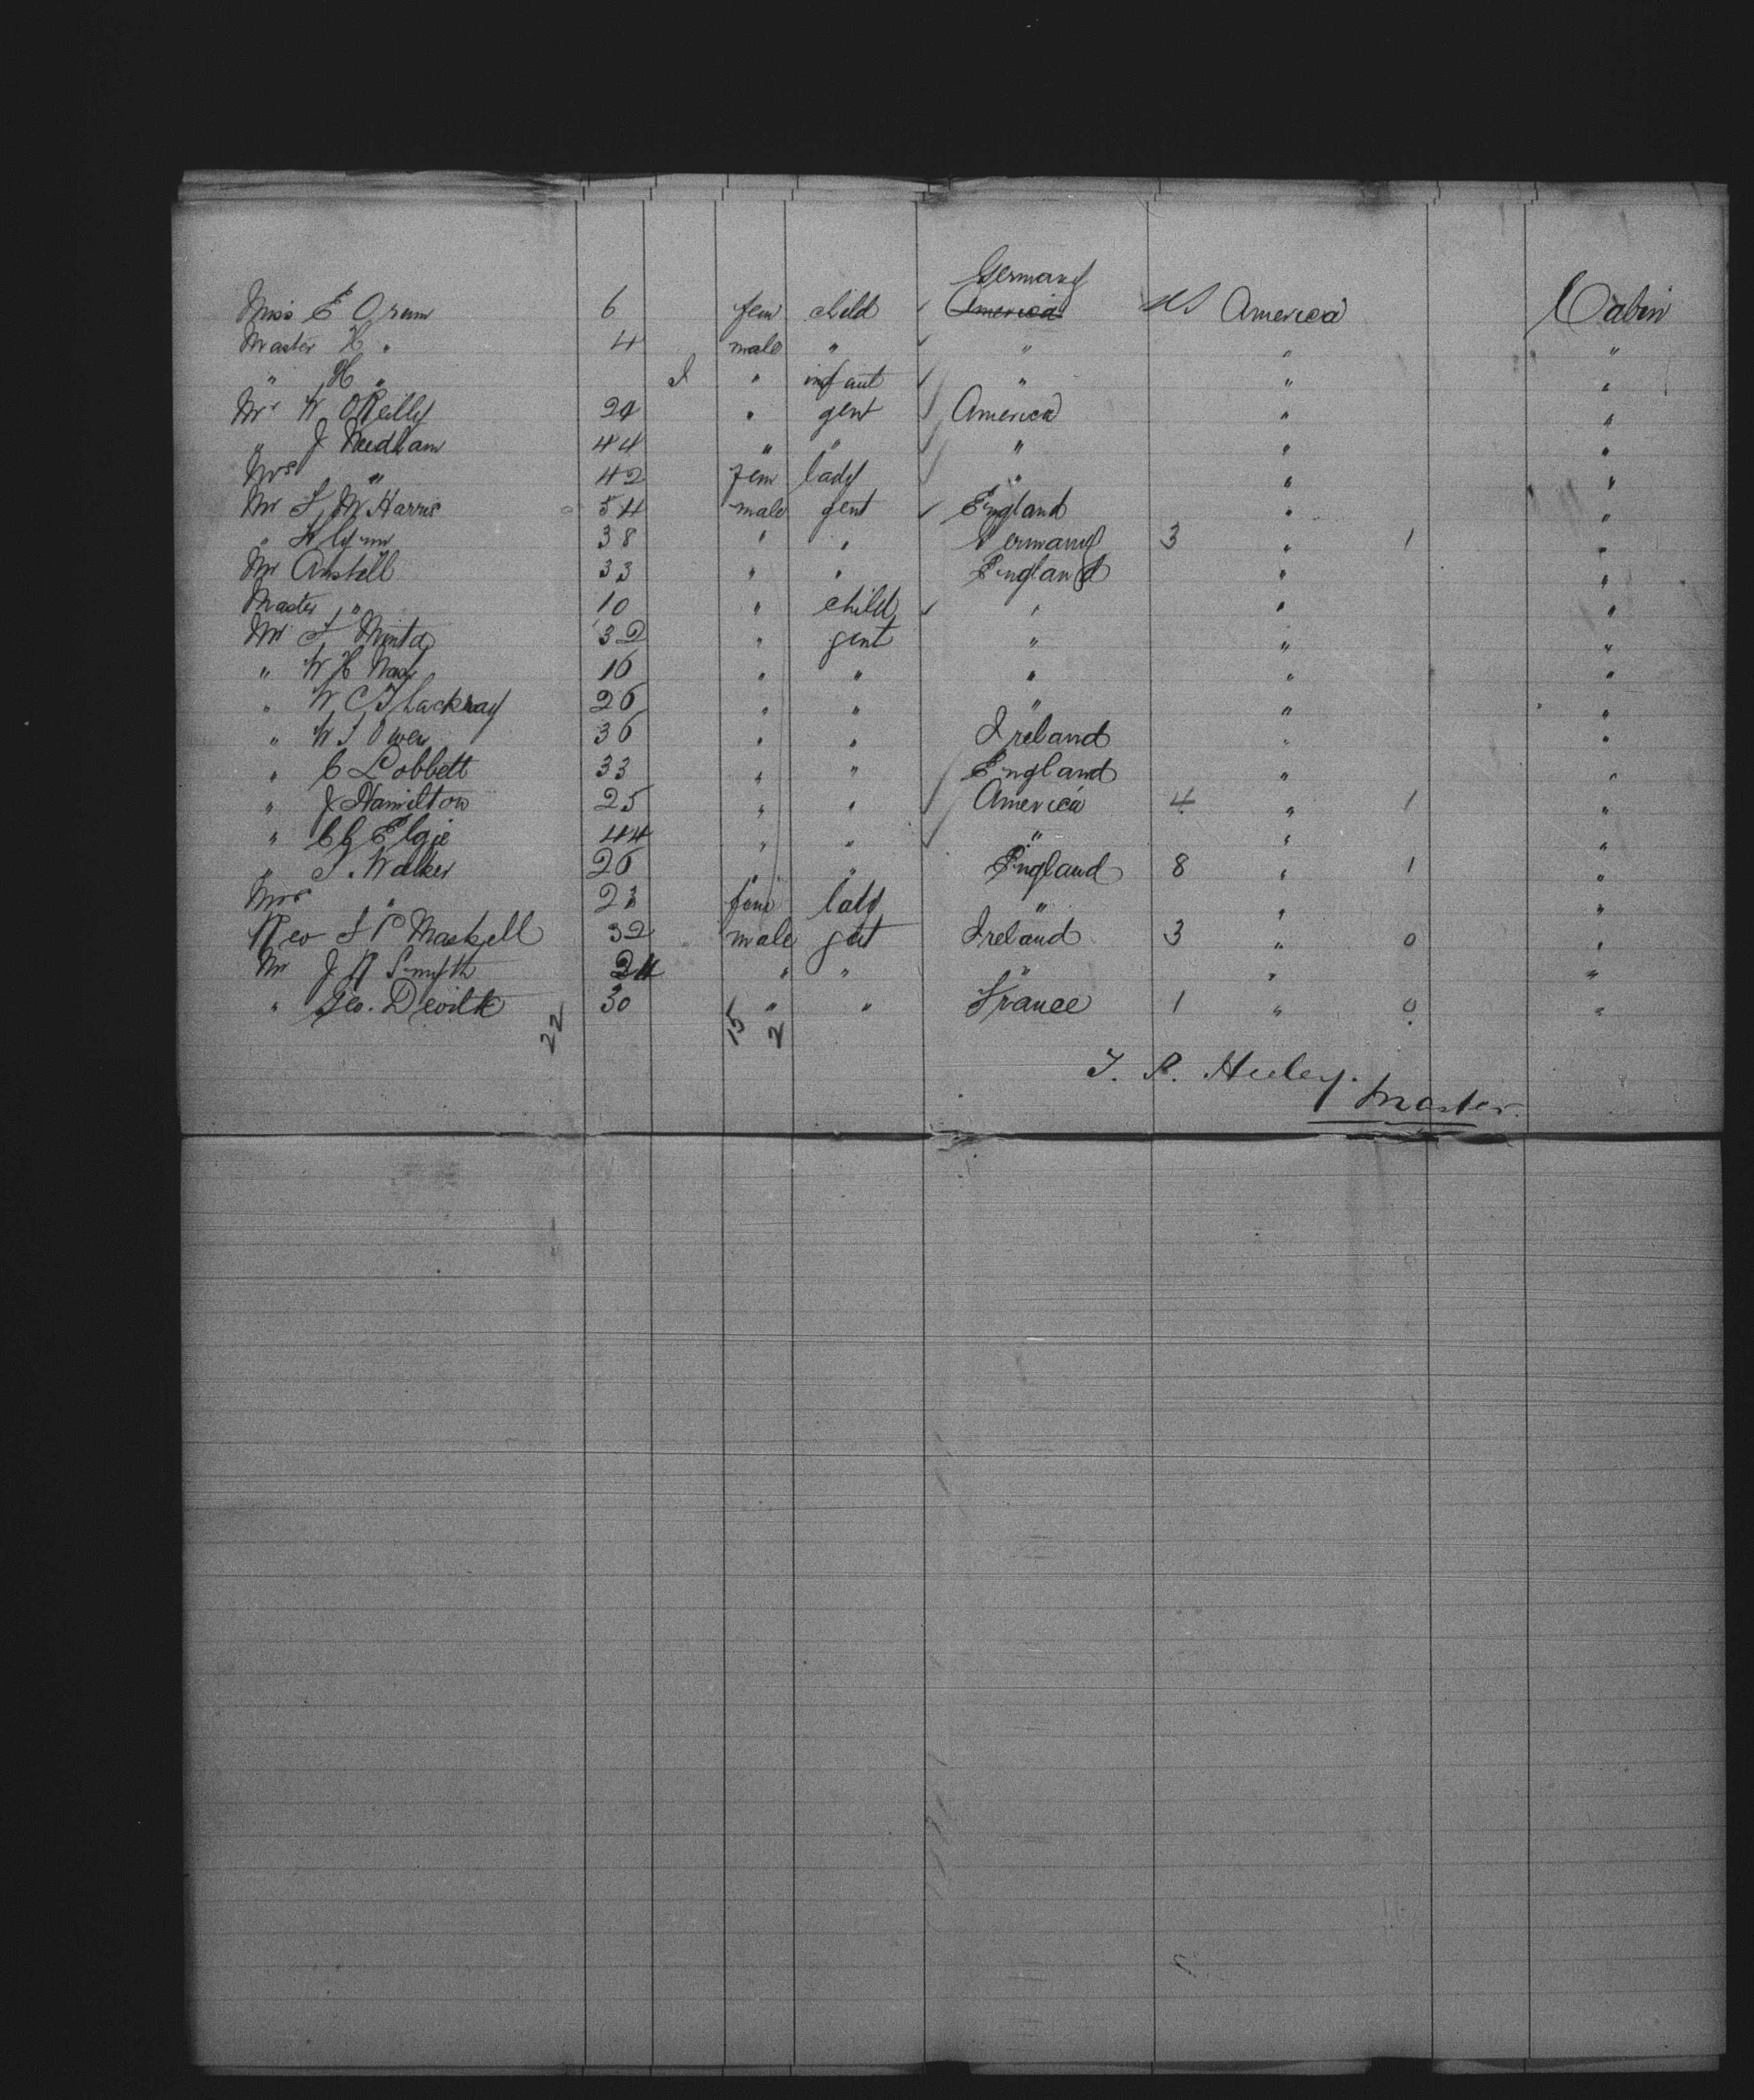 Germany
Miss E Orum 6 fem child ✓ America US America Cabin
Master H " 4 male " ✓ " " "
" H " I " infant ✓ " " "
Mr W OReilly 24 " gent ✓ America " "
" J Needham 44 " " ✓ " " "
Mrs " 42 fem lady ✓ " " "
Mr F W Harris 54 male gent ✓ England " "
" 38 " " Germany 3 " 1 "
Mr Anstell 33 " " England " "
Master " 10 " child ✓ " " "
Mr F Minta 32 " gent " " "
" W H 16 " " " " "
" W C Thackray 26 " " " " "
" W J Owen 36 " " Ireland " "
" C Lobbett 33 " " England " "
" J Hamilton 25 " " ✓ America 4 " 1 "
" C G Elgie 44 " " ✓ " " "
" J. Walker 26 " " England 8 " 1 "
Mrs " 23 fem lady " " "
Rev J P Maskell 32 male gent Ireland 3 " 0 "
Mr J R Smyth 24 " " " " "
" Geo. 30 " " France 1 " 0 "
22 15 2
T. P. Huley.
Master.